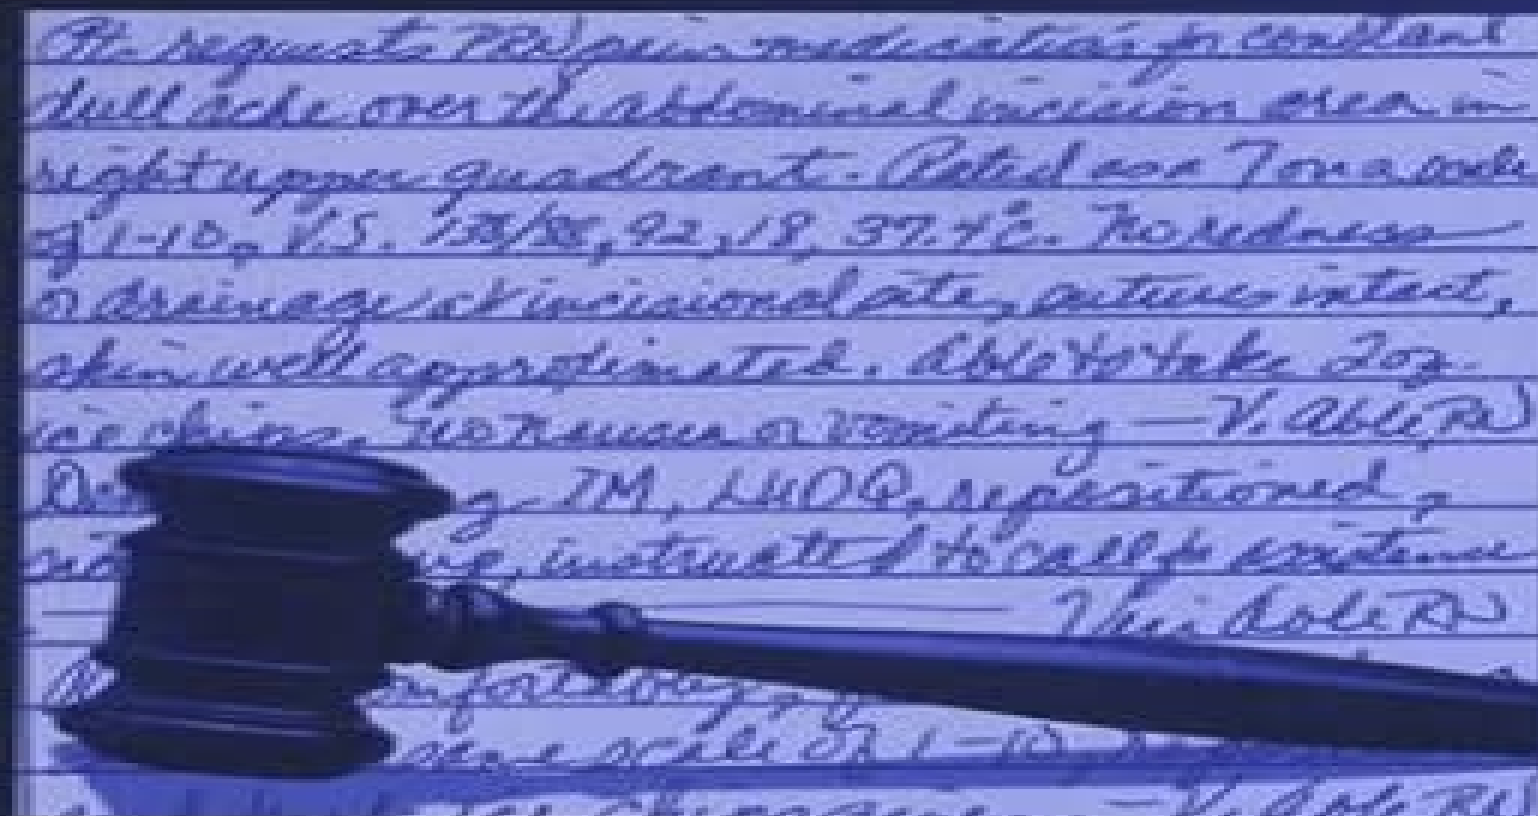 Pt. requests PRN pain medication for constant
dull ache over the abdominal incision area in
right upper quadrant. Rated as a 7 on a scale
of 1-10, V.S. 138/88, 92, 18, 37.4°C. No redness
or drainage at incisional site, sutures intact,
skin well approximated. Able to take 2oz.
ice chips. No nausea or vomiting — V. Able, RN
IM, LUOQ, repositioned,
instructed to call for assistance
Able RN
comfortably,
scale of 1-10
— V. Able RN